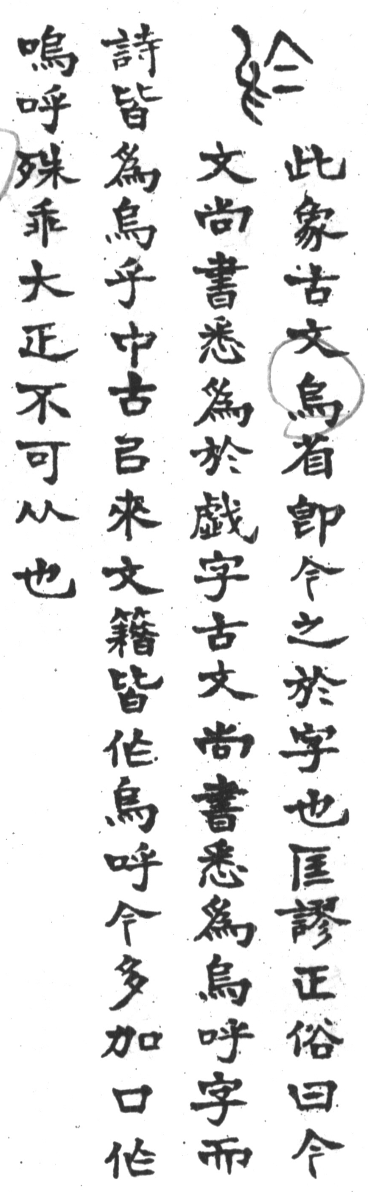 此象古文烏省卽今之於字也匡謬正俗曰今
文尚書悉爲於戲字古文尚書悉爲烏呼字而
詩皆爲烏乎中古㠯來文籍皆作烏呼今多加口作
嗚呼殊乖大正不可从也